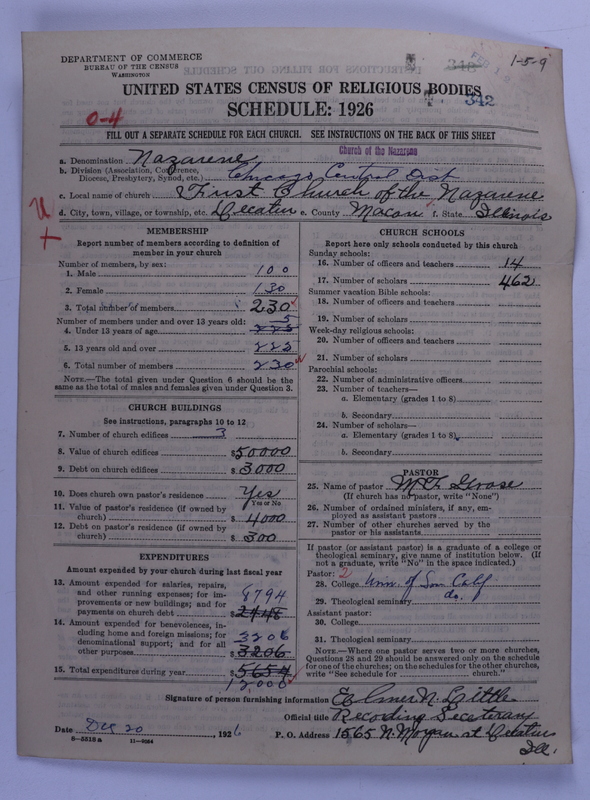 DEPARTMENT OF COMMERCE
BUREAU OF THE CENSUS
WASHINGTON
348
1-5-9
UNITED STATES CENSUS OF RELIGIOUS BODIES
342
SCHEDULE: 1926
0-4
FILL OUT A SEPARATE SCHEDULE FOR EACH CHURCH. SEE INSTRUCTIONS ON THE BACK OF THIS SHEET
Church of the Nazarene
a. Denomination Nazarene
b. Division (Association, Conference, Diocese, Presbytery, Synod, etc.) Chicago Central Dist
c. Local name of church First Church of the Nazarene
d. City, town, village, or township, etc. Decatur e. County Macon f. State Illinois
MEMBERSHIP
Report number of members according to definition of member in your church
Number of members, by sex:
1. Male 100
2. Female 130
3. Total number of members 230
Number of members under and over 13 years old: 5
4. Under 13 years of age 225
5. 13 years old and over 225
6. Total number of members 230
NOTE.—The total given under Question 6 should be the same as the total of males and females given under Question 3.
CHURCH BUILDINGS
See instructions, paragraphs 10 to 12
7. Number of church edifices 3
8. Value of church edifices $50000
9. Debt on church edifices $3000
10. Does church own pastor's residence Yes
Yes or No
11. Value of pastor's residence (if owned by church) $4000
12. Debt on pastor's residence (if owned by church) $300
EXPENDITURES
Amount expended by your church during last fiscal year
13. Amount expended for salaries, repairs, and other running expenses; for improvements or new buildings; and for payments on church debt 8794
$2448
14. Amount expended for benevolences, including home and foreign missions; for denominational support; and for all other purposes 3206
$3206
15. Total expenditures during year $5654
12000
CHURCH SCHOOLS
Report here only schools conducted by this church
Sunday schools:
16. Number of officers and teachers 14
17. Number of scholars 462
Summer vacation Bible schools:
18. Number of officers and teachers
19. Number of scholars
Week-day religious schools:
20. Number of officers and teachers
21. Number of scholars
Parochial schools:
22. Number of administrative officers
23. Number of teachers—
a. Elementary (grades 1 to 8)
b. Secondary
24. Number of scholars—
a. Elementary (grades 1 to 8)
b. Secondary
PASTOR
25. Name of pastor
(If church has no pastor, write "None")
26. Number of ordained ministers, if any, employed as assistant pastors
27. Number of other churches served by the pastor or his assistants
If pastor (or assistant pastor) is a graduate of a college or theological seminary, give name of institution below. (If not a graduate, write "No" in the space indicated.)
Pastor: 2
28. College Univ. of Sou Calif
29. Theological seminary do.
Assistant pastor:
30. College
31. Theological seminary
NOTE.—Where one pastor serves two or more churches, Questions 28 and 29 should be answered only on the schedule for one of the churches; on the schedules for the other churches, write "See schedule for church."
Signature of person furnishing information Elmer N. Little
Official title Recording Seceterary
Date Dec 20, 1926
P. O. Address 1565 N. Morgan st Decatur Ill.
8-5513 a 11-9084